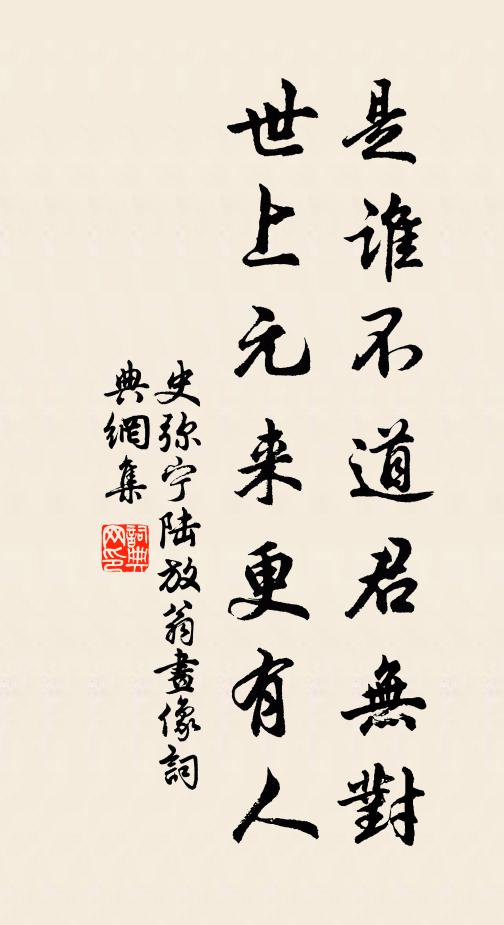 是誰不道君無對
世上元来更有人
史弥宁陆放翁畫像詞
典網集
詞典
网印